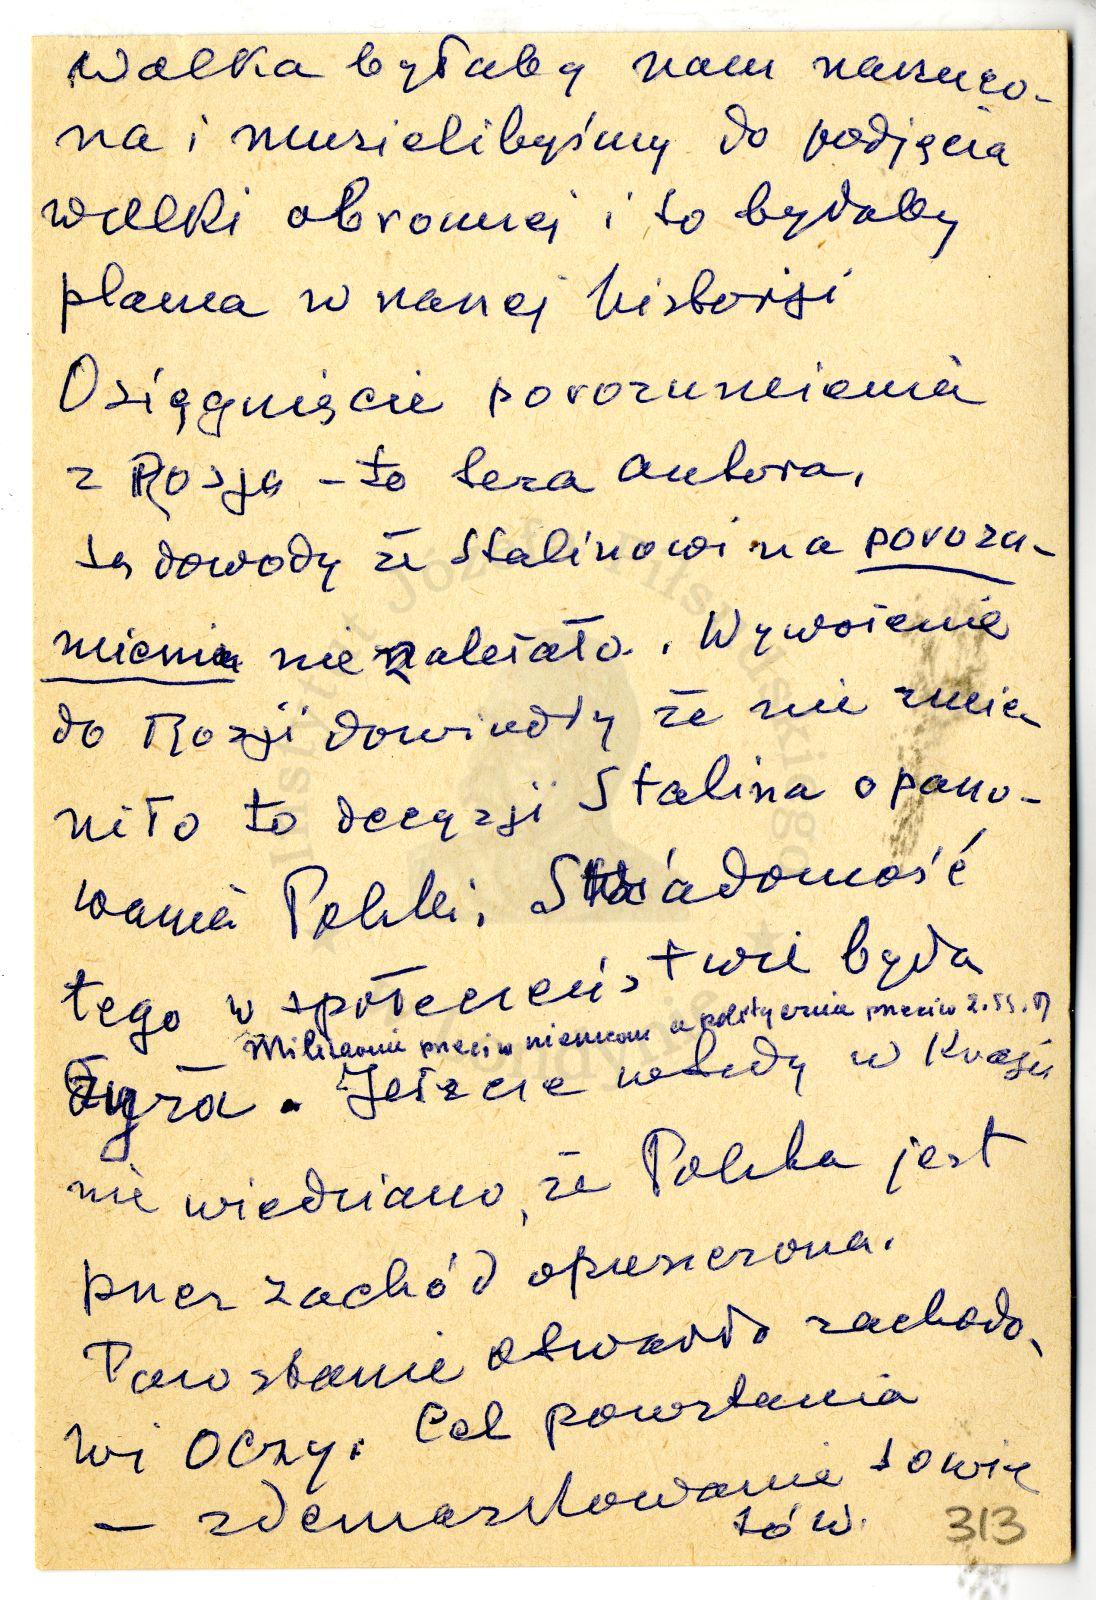 Walka byłaby nam narzuco-
na i musielibyśmy do podjęcia
walki obronnej i to byłaby
plama w naszej historji
Osiągnięcie porozumienia
z Rosją - to teza autora.
są dowody że Stalinowi na porozu-
mieniu nie zależało. Wywożenie
do Rosji dowiodły że nie zmie-
niło to decyzji Stalina opano-
wania Polski. Świadomość
tego w społeczeństwie była
Militarnie przeciw niemcom a politycznie przeciw Z.SS.R
żyła. Jeszcze wtedy w Kraju
nie wiedziano, że Polska jest
przez zachód opuszczona.
Powstanie otwarło zachodo-
wi oczy. Cel powstania
- zdemaskowanie sowie
tów.
313
Instytut Józefa Piłsudskiego
w Londynie